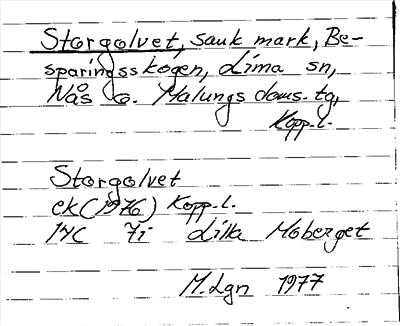 Storgolvet, sank mark, Be-
sparingsskogen, Lima sn,
Nås o. Malungs doms. tg,
Kopp.l.
Storgolvet
ek (1976) Kopp.l.
14C 7i Lilla Moberget
M.Lgn 1977